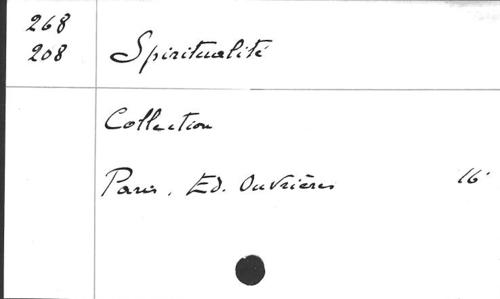 268
208
Spiritualité
Collection
Paris, Ed. Ouvrières 16°